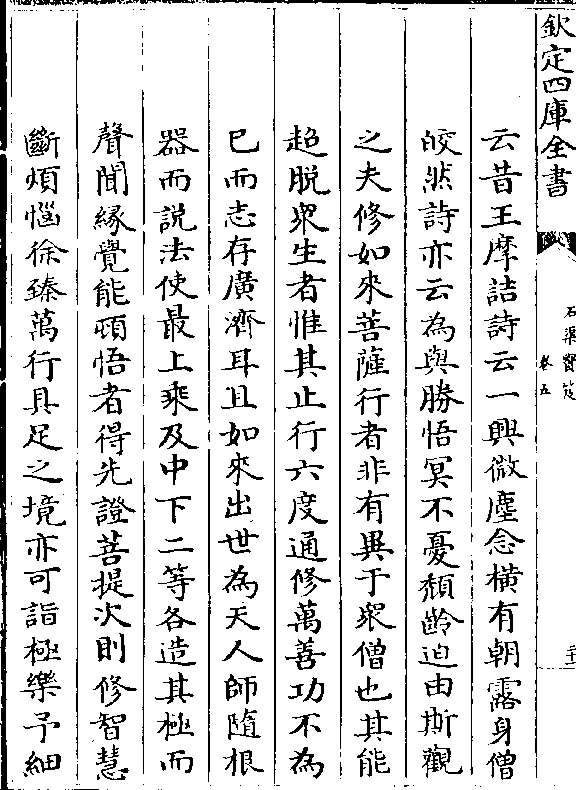 欽定四庫全書
石渠寶笈
卷五
云昔王摩詰詩云一興微塵念橫有朝露身僧
皎然詩亦云為與勝悟冥不憂頹齡迫由斯觀
之夫修如來菩薩行者非有異于衆僧也其能
超脱衆生者惟其止行六度通修萬善功不為
已而志存廣濟耳且如來出世為天人師隨根
器而説法使最上乘及中下二等各造其極而
聲聞緣覺能頓悟者得先證菩提次則修智慧
斷煩惱徐臻萬行具足之境亦可詣極樂予細